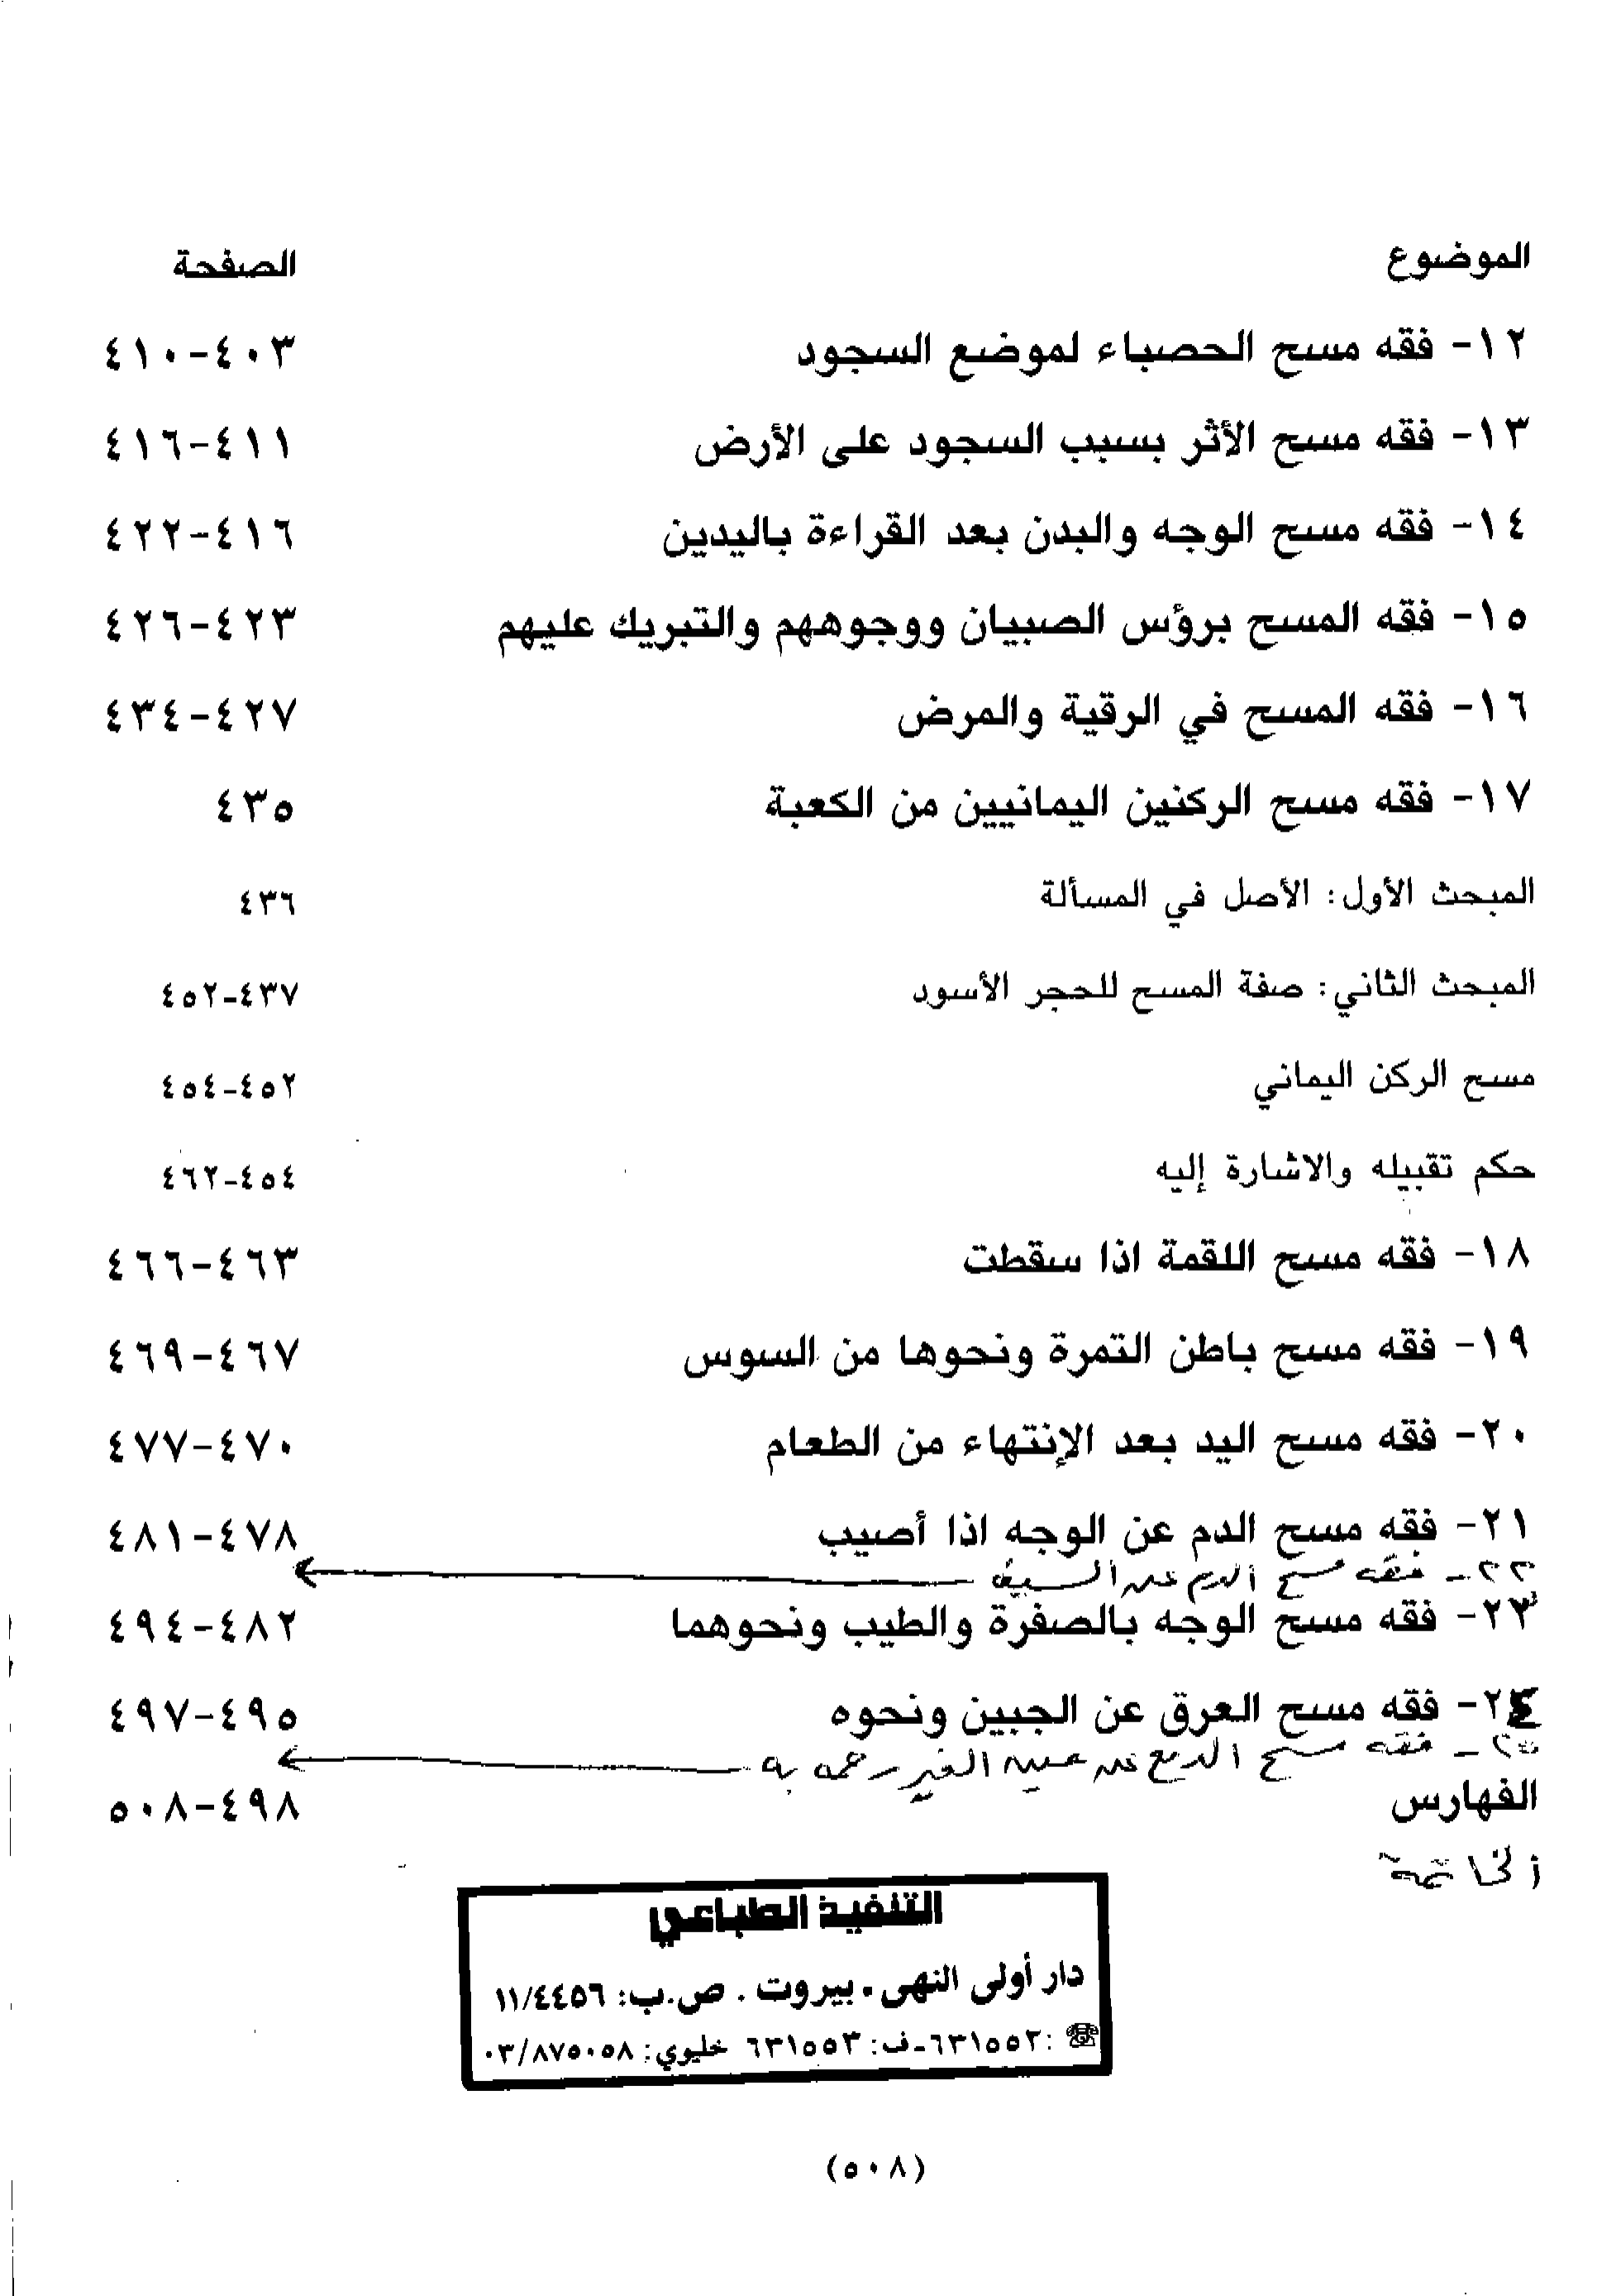 الموضوع الصفحة
١٢- فقه مسح الحصباء لموضع السجود ٤٠٣-٤١٠
١٣- فقه مسح الأثر بسبب السجود على الأرض ٤١١-٤١٦
١٤- فقه مسح الوجه والبدن بعد القراءة باليدين ٤١٦-٤٢٢
١٥- فقه المسح برؤس الصبيان ووجوههم والتبريك عليهم ٤٢٣-٤٢٦
١٦- فقه المسح في الرقية والمرض ٤٢٧-٤٣٤
١٧- فقه مسح الركنين اليمانيين من الكعبة ٤٣٥
المبحث الأول: الأصل في المسألة ٤٣٦
المبحث الثاني: صفة المسح للحجر الأسود ٤٣٧-٤٥٢
مسح الركن اليماني ٤٥٢-٤٥٤
حكم تقبيله والاشارة إليه ٤٥٤-٤٦٢
١٨- فقه مسح اللقمة اذا سقطت ٤٦٣-٤٦٦
١٩- فقه مسح باطن التمرة ونحوها من السوس ٤٦٧-٤٦٩
٢٠- فقه مسح اليد بعد الإنتهاء من الطعام ٤٧٠-٤٧٧
٢١- فقه مسح الدم عن الوجه اذا أصيب ٤٧٨-٤٨١
٢٢- فقه مسح الدم عن السيف
٢٣- فقه مسح الوجه بالصفرة والطيب ونحوهما ٤٨٢-٤٩٤
٢٤- فقه مسح العرق عن الجبين ونحوه ٤٩٥-٤٩٧
٢٥- فقه مسح الدمع عن عين الغير رحمة به
الفهارس ٤٩٨-٥٠٨
الخاتمة
التنفيذ الطباعي
دار أولى النهى - بيروت . ص.ب: ١١/٤٤٥٦
☏: ٦٣١٥٥٢-ف: ٦٣١٥٥٣ خليوي: ٠٣/٨٧٥٠٥٨
(٥٠٨)